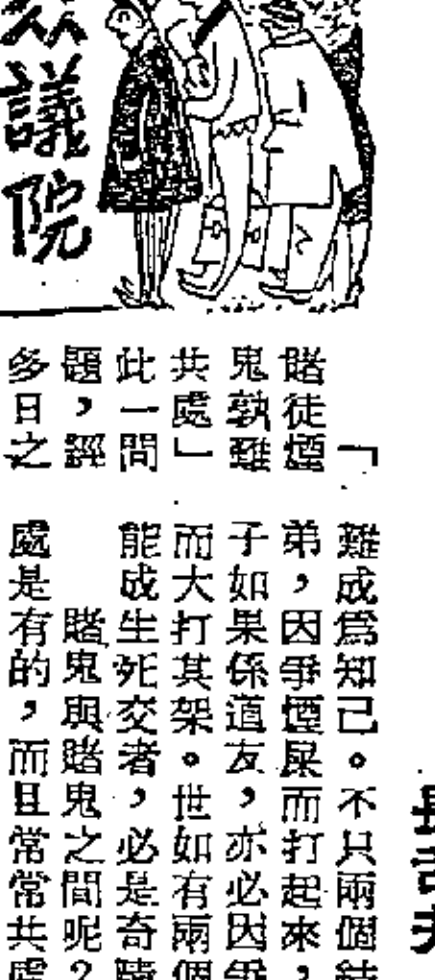 議院
「
賭徒煙
鬼孰難
共處」
此一問
題，經
多日之
難成爲知己。不只兩個
弟，因爭煙屎而打起來，
子如果係道友，亦必因爭
而大打其架。世如有兩個
能成生死交者，必是奇蹟
賭鬼與賭鬼之間呢？
處是有的，而且常常共處